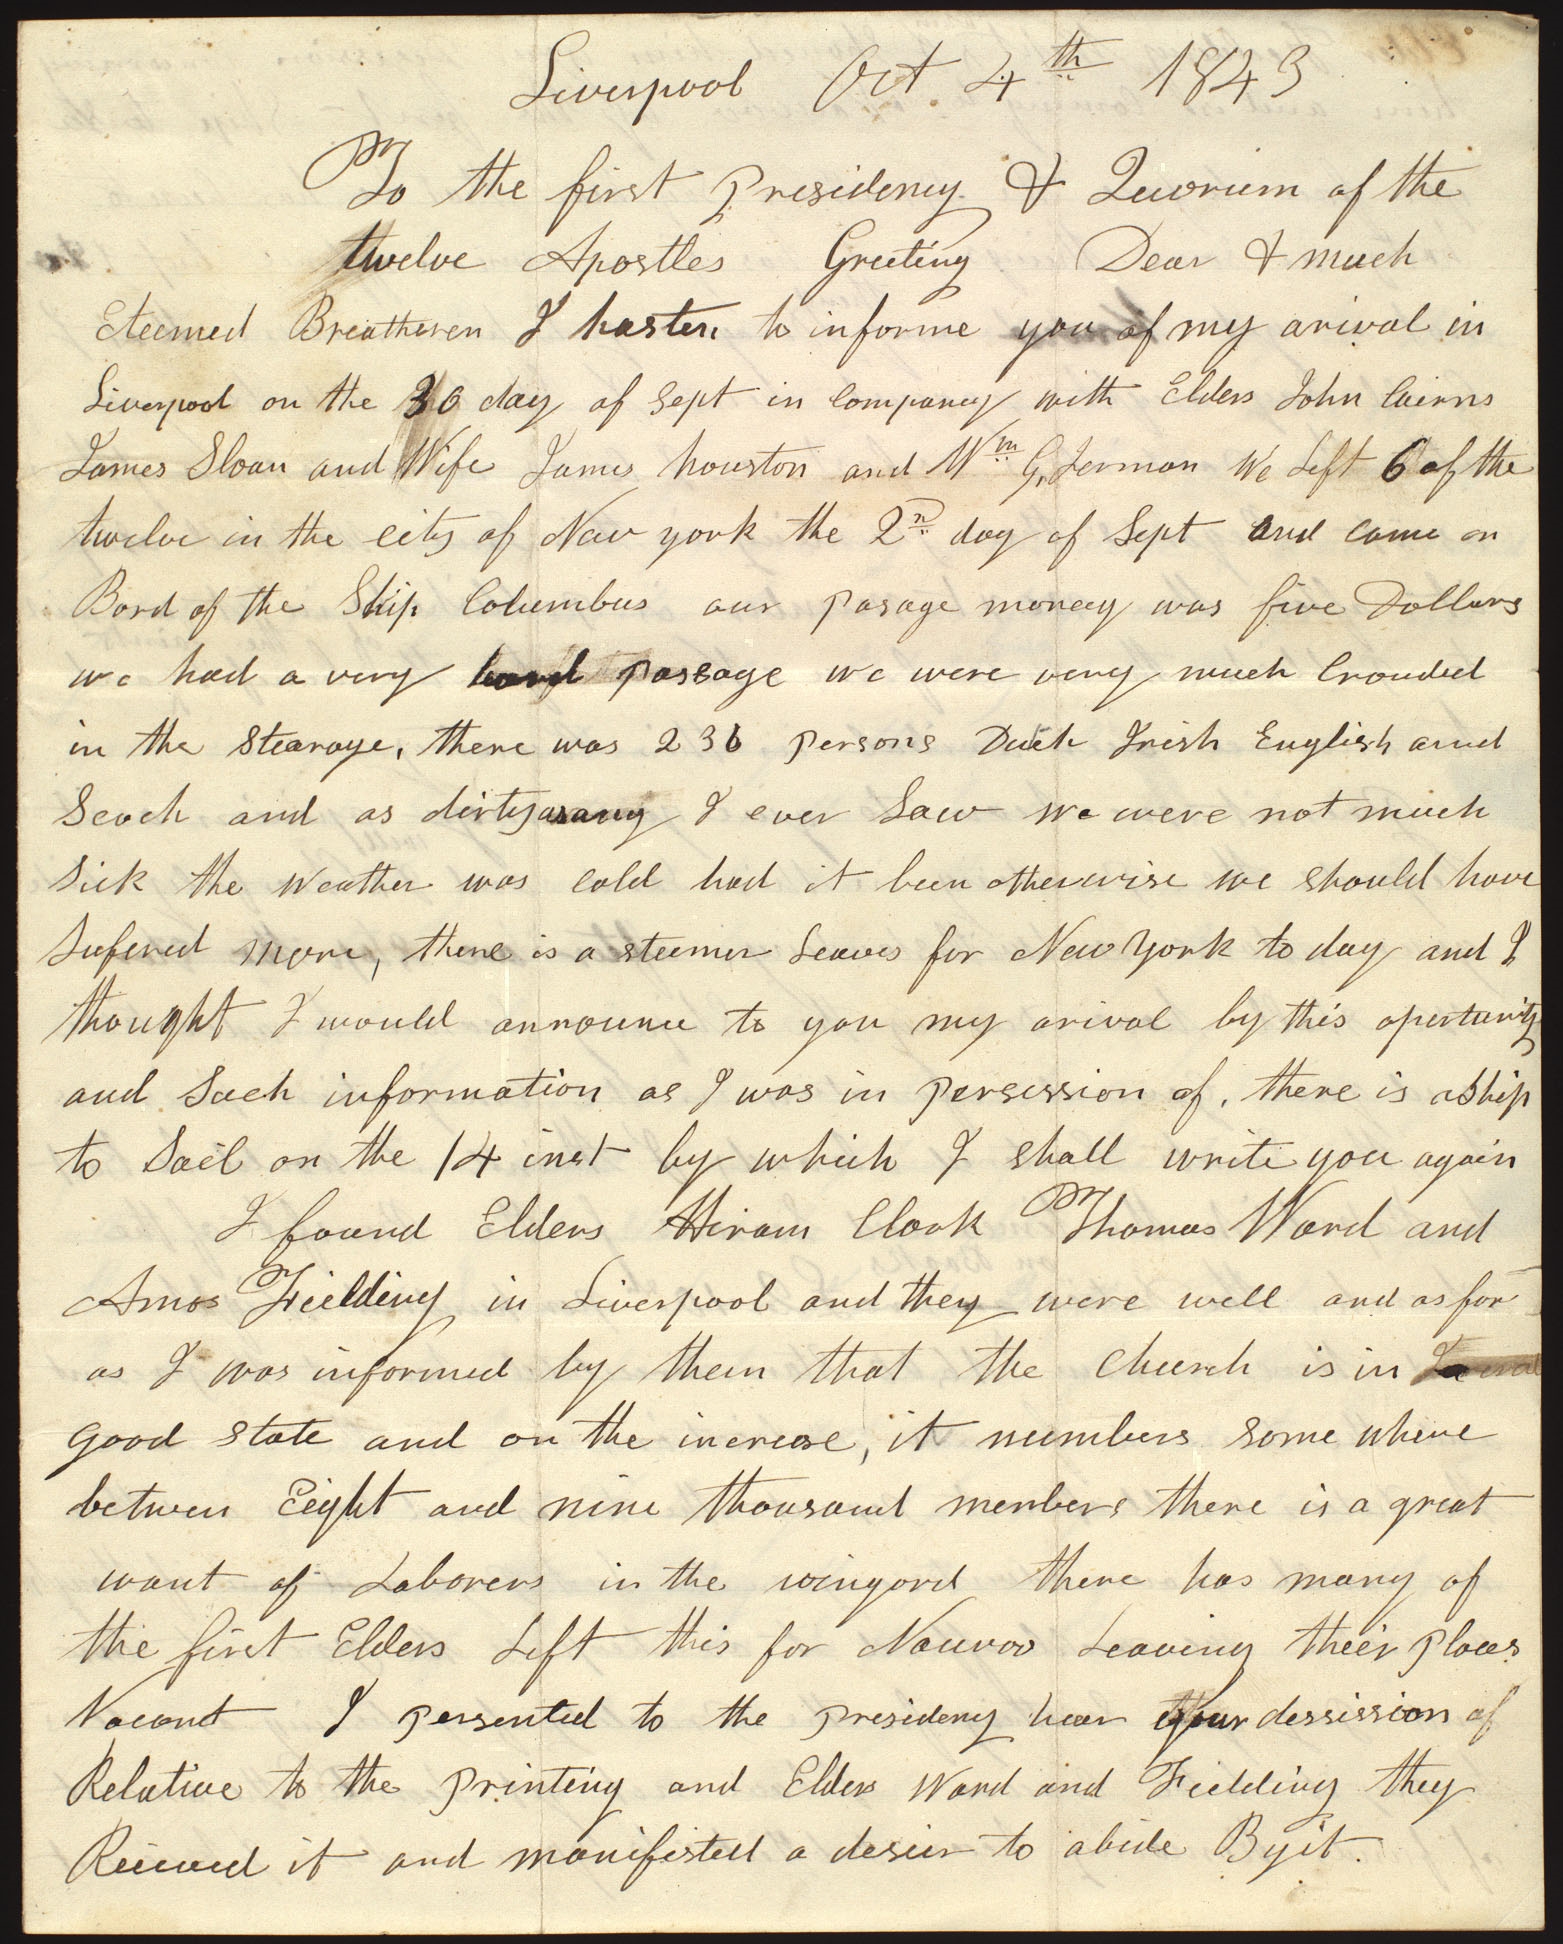 Liverpool Oct 4th 1843
To the first Presidency & Quorum of the
twelve Apostles Greeting Dear & much
Eteemed Breatheren I hasten to informe you of my arival in
Liverpool on the 30 day of Sept in Company with Elders John Cairns
James Sloan and Wife James houston and Wm G. Jerman We Left 6 of the
twelve in the city of New york the 2nd day of Sept and came on
Bord of the Ship Columbus our pasage money was five Dollars
we had a very hard passage we were very much Crouded
in the Stearage, there was 236 persons Duch Irish English and
Scoch and as dirty as any I ever Saw we were not much
Sick the Weather was cold had it been otherwise we should have
Sufered more, there is a steemer Leaves for New York to day and I
thought I would announce to you my arival by this opertunity
and Such information as I was in persession of, there is a Ship
to Sail on the 14 inst by which I shall write you again
I found Elders Hiram Clark Thomas Ward and
Amos Fielding in Liverpool and they were well and as far
as I was informed by them that the Church is in
good state and on the increase, it numbers some where
betwen Eight and nine thousand members there is a great
want of Laborers in the vinyard there has many of
the first Elders Left this for Nauvoo Leaving their places
Vacant I persented to the presideny hear your dessission of
Relative to the printing and Elders Ward and Fielding they
Reicved it and manifisted a desier to abide By it.